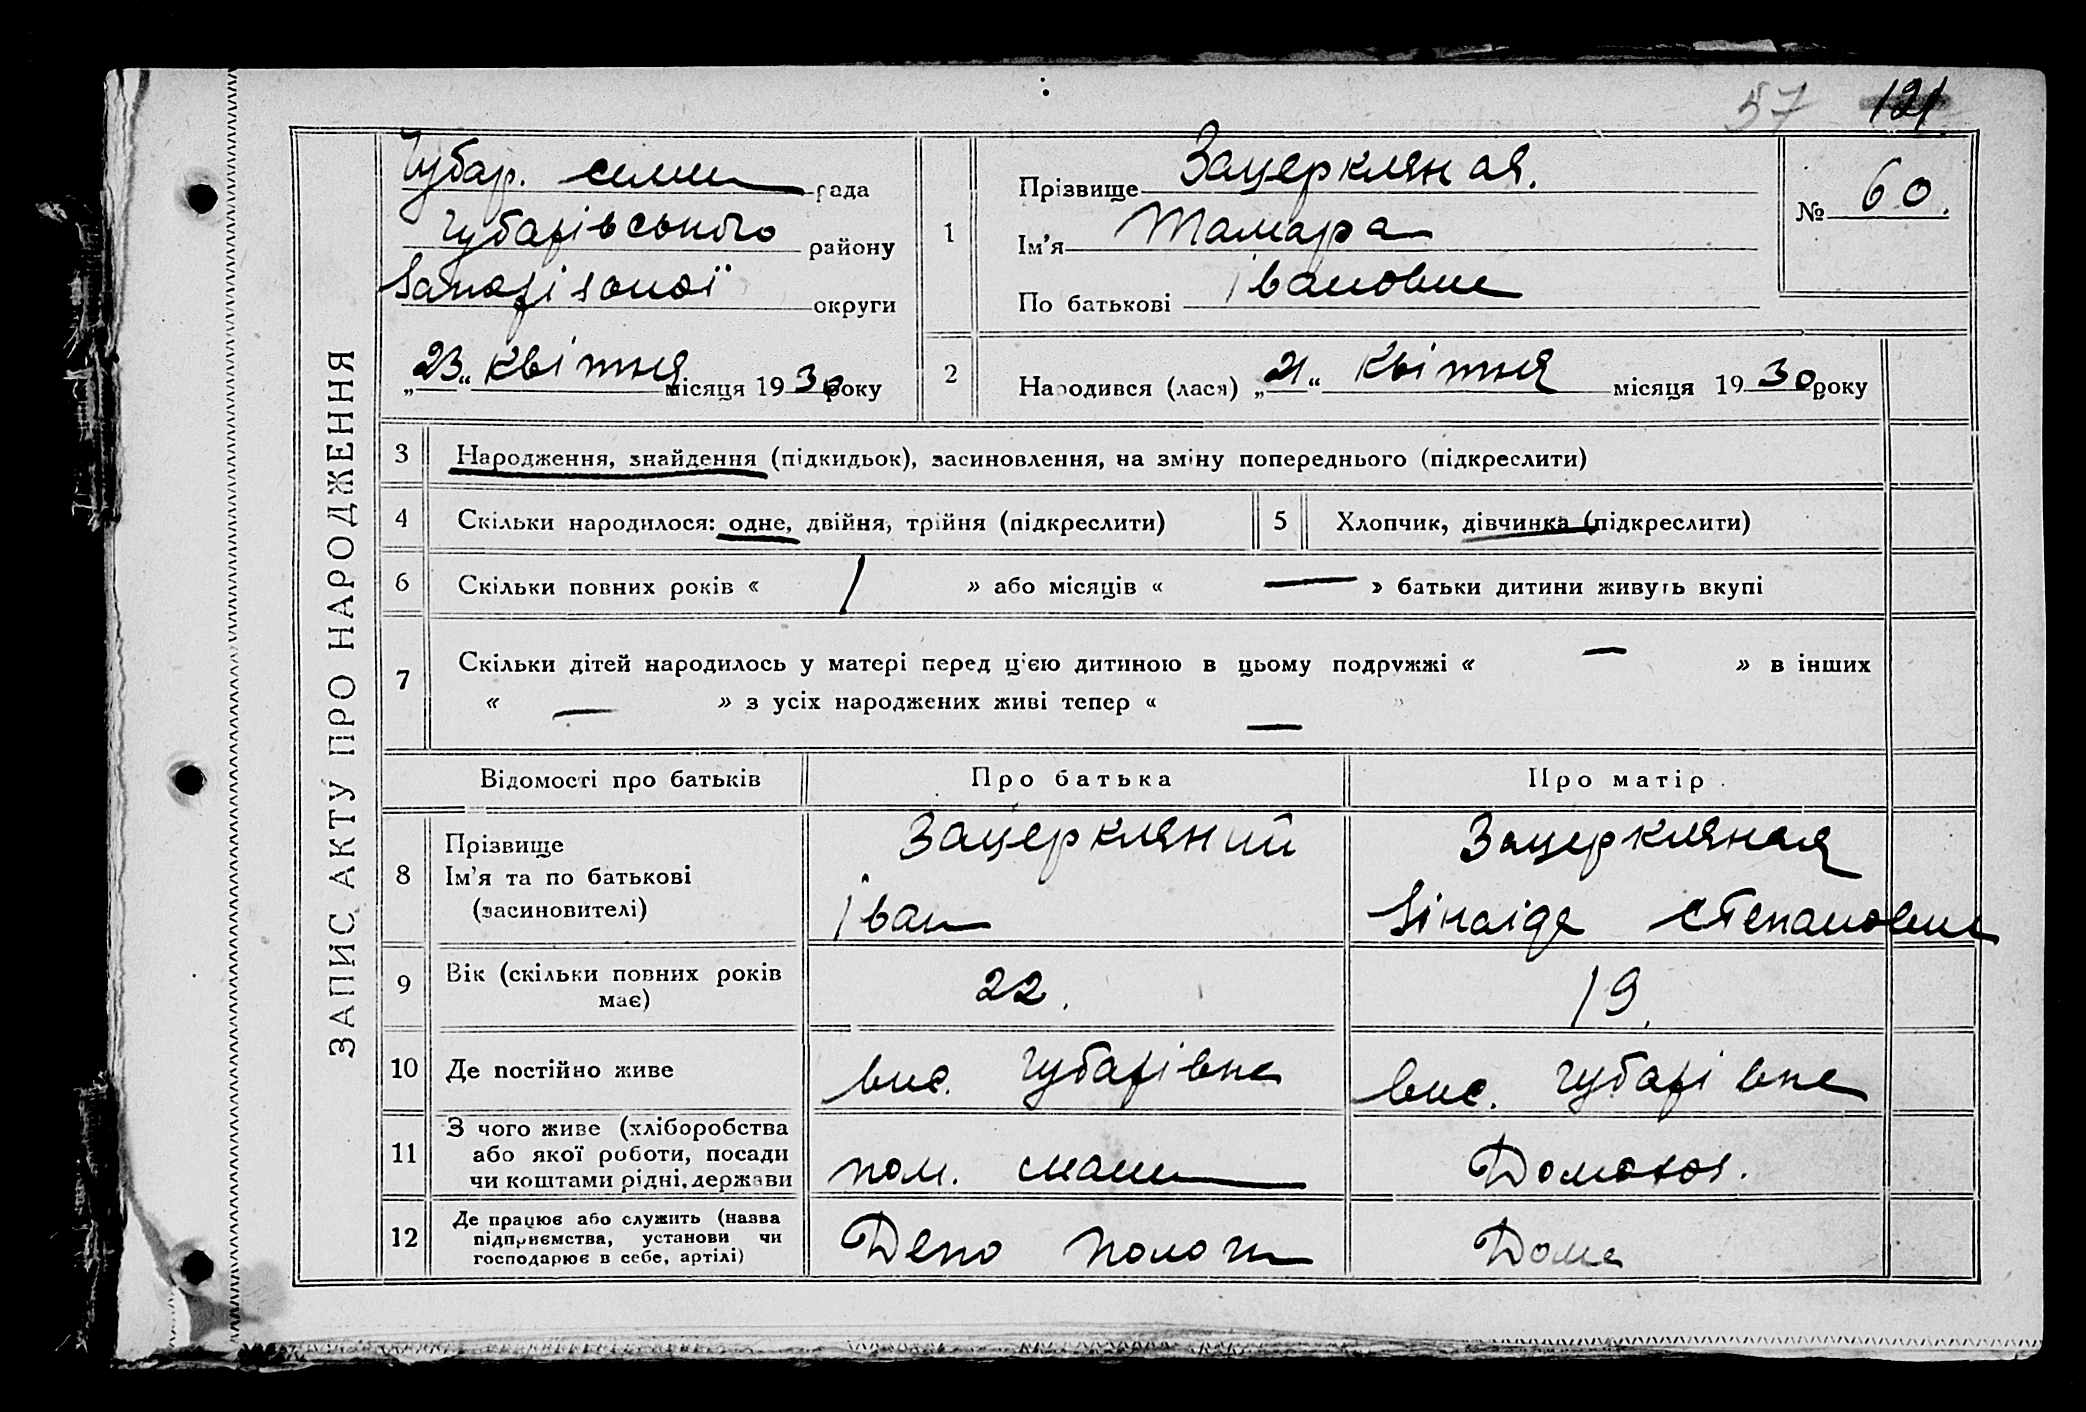 57 121
ЗАПИС АКТУ ПРО НАРОДЖЕННЯ
Чубар. рада
Чубарівського району
Запорізької округи
„23“ квітня місяця 1930 року
1
Прізвище Зацеркляная.
Ім’я Тамара
По батькові Івановна
№ 60.
2
Народився (лася) „21“ квітня місяця 1930 року
3 Народження, знайдення (підкидьок), засиновлення, на зміну попереднього (підкреслити)
4 Скільки народилося: одне, двійня, трійня (підкреслити) 5 Хлопчик, дівчинка (підкреслити)
6 Скільки повних років « 1 » або місяців « — » батьки дитини живуть вкупі
7 Скільки дітей народилось у матері перед ц’єю дитиною в цьому подружжі « — » в інших
« — » з усіх народжених живі тепер « — »
Відомості про батьків Про батька Про матір
8 Прізвище
Ім’я та по батькові
(засиновителі)
Зацеркляний
Іван
Зацеркляная
Зінаіда Степановна
9 Вік (скільки повних років
має)
22.
19.
10 Де постійно живе вис. Чубарівка вис. Чубарівка
11 З чого живе (хліборобства
або якої роботи, посади
чи коштами рідні, держави
пом. маш
Домохоз.
12 Де працює або служить (назва
підприємства, установи чи
господарює в себе, артілі)
Депо Пологи
Дома